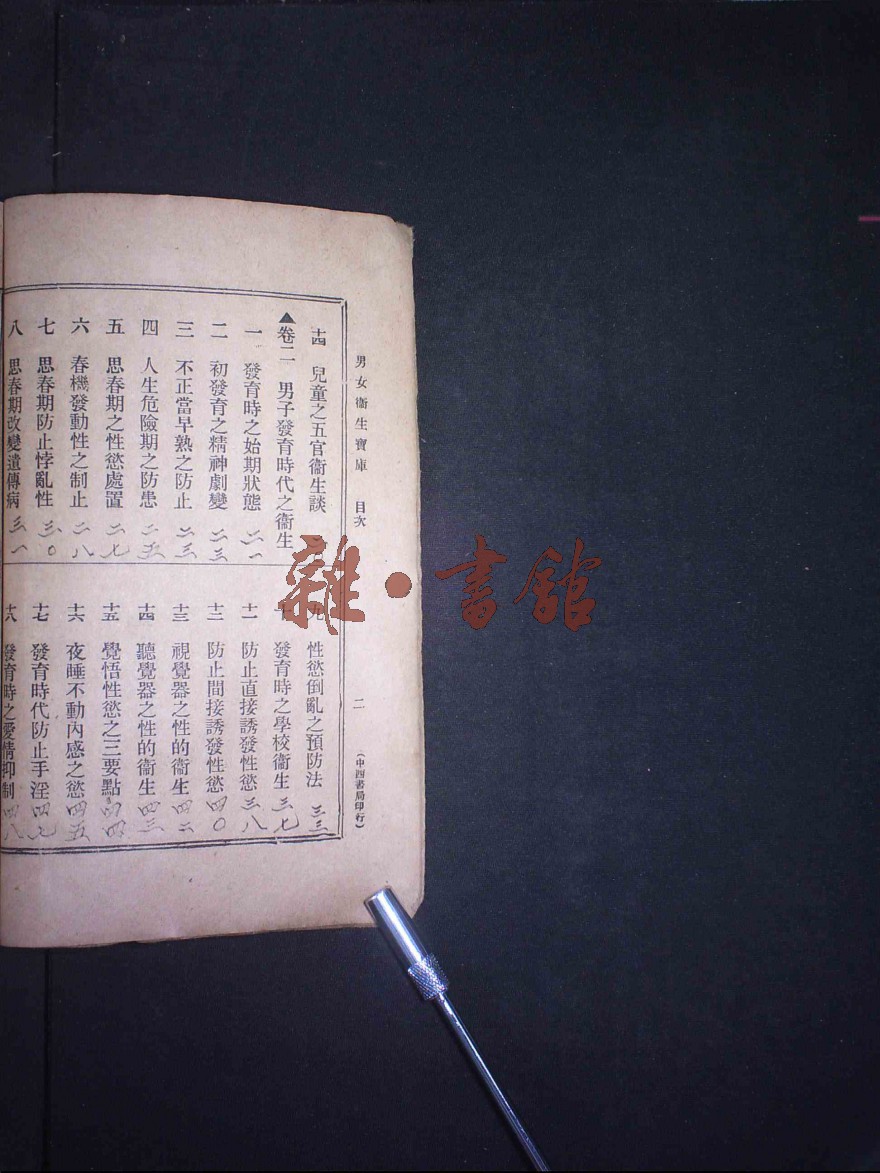 男女衞生寶庫 目次 二 （中西書局印行）
十四 兒童之五官衞生談
▲卷二 男子發育時代之衞生
一 發育時之始期狀態 二一
二 初發育之精神劇變 二三
三 不正當早熟之防止 二三
四 人生危險期之防患 二五
五 思春期之性慾處置 二七
六 春機發動性之制止 二八
七 思春期防止悖亂性 三〇
八 思春期改變遺傳病 三一
九 性慾倒亂之預防法 三三
十 發育時之學校衞生 三七
十一 防止直接誘發性慾 三八
十二 防止間接誘發性慾 四〇
十三 視覺器之性的衞生 四二
十四 聽覺器之性的衞生 四三
十五 覺悟性慾之三要點 四四
十六 夜睡不動內感之慾 四五
十七 發育時代防止手淫 四七
十八 發育時之愛情抑制 四八
雜·書館